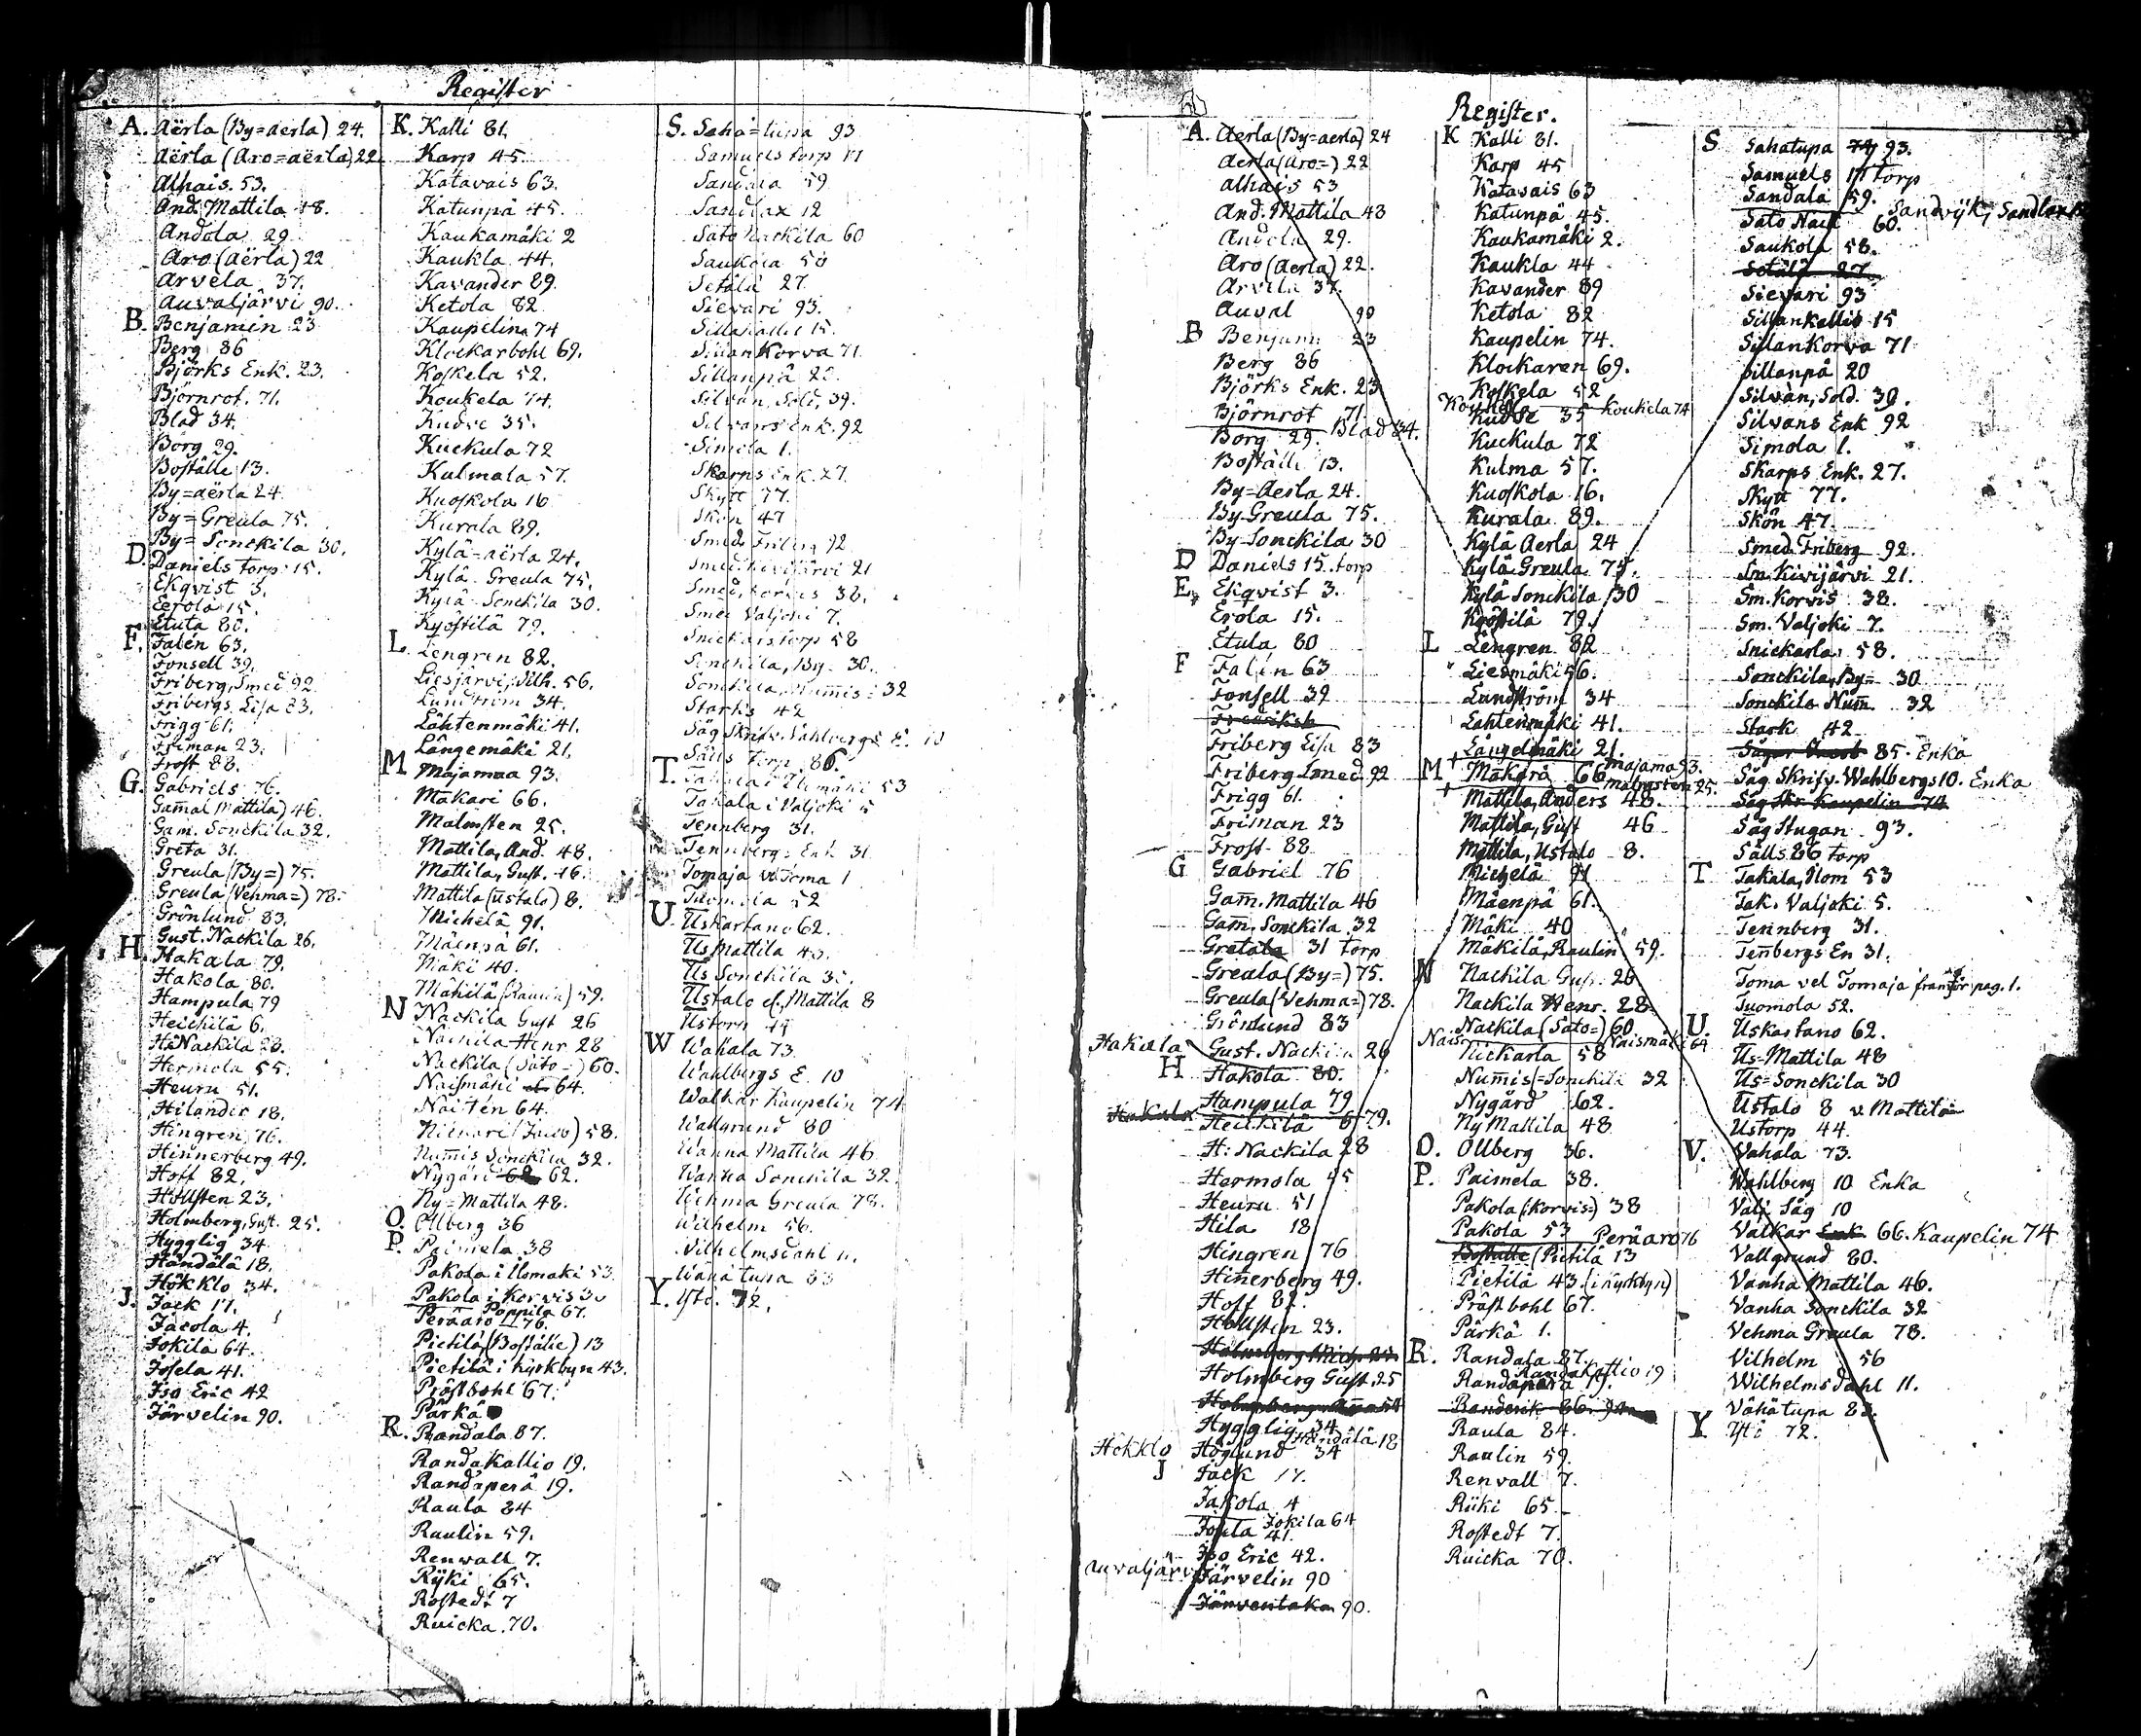 Register
A. Aërla (By=aerla) 24.
Aërla (Aro=aërla) 22
Alhais. 53.
And. Mattila 48.
Andola 29
Aro (aërla) 22
Arvela 37.
Auvaljärvi 90.
B. Benjamin 23
Berg 86
Björks Enk. 23.
Björnrot. 71.
Blad 34.
Borg 29.
Boställe 13.
By=aërla 24
By=Greula 75.
By=Sonckila 30.
D. Daniels torp 15.
Ekqvist 3.
Eerola 15.
Etula 80.
F. Falén 63.
Fonsell 39.
Friberg, Smed 92
Fribergs Lisa 83.
Frigg 61.
Friman 23.
Frost 88.
G. Gabriels 76.
Gam̄al Mattila) 46.
Gam. Sonckila 32.
Greta 31.
Greula (By=) 75.
Greula (Vehma=) 78.
Grönlund 83.
Gust. Nackila 26.
H. Hakala 79.
Hakola 80.
Hampula 79
Heickilä 6.
H. Nackila 28.
Hermola 55.
Heuru 51.
Hilander 18.
Hingren 76.
Hinnerberg 49.
Hoff 82.
Hollsten 23.
Holmberg, Gust. 25.
Hygglig 34
Händälä 18.
Hökklo 34.
J. Jack 17.
Jacola 4.
Jokila 64.
Josela 41.
Iso Eric 42
Järvelin 90.
K. Kalli 81.
Karp 45
Katavais 63.
Katunpä 45.
Kaukamäki 2
Kaukla 44.
Kavander 89.
Ketola 82
Kaupelin 74
Klockarbohl 69.
Koskela 52.
Koukela 74.
Kudve 35.
Kuckula 72
Kulmala 57.
Kuoskola 16
Kurala 89.
Kylä=aërla 24.
Kylä Greula 75.
Kylä Sonckila 30.
Kyöstilä 79.
L. Lengren 82.
Liesjärvi, Wilh. 56.
Lundström 34.
Lähtenmäki 41.
Längemäki 21.
M Majamaa 93.
Mäkari 66.
Malmsten 25.
Mattila, And. 48.
Mattila, Gust. 46.
Mattila (Ustalo) 8.
Michelä 91.
Mäenpä 61.
Mäki 40.
Mäkilä (Raulin) 59.
N Nackila Gust 26
Nackila Henr. 28
Nackila (Sato=) 60.
Naismäki 64.
Naitén 64.
Nickari (Jacob) 58.
Num̄is Sonckila 32.
Nygård 62.
Ny=Mattila 48.
O. Ollberg 36
P. Paimela 38
Pakola i Ilomäki 53.
Pakola i Korvis 38
Pappila 67.
Peräaro 76.
Pietilä (Boställe) 13
Pietilä i kyrkbyn 43.
Prästbohl 67.
Pärkä
R. Randala 87.
Randakallio 19.
Randaperä 19.
Raula 84
Raulin 59.
Renwall 7.
Ryki 65.
Rostedt 7
Ruicka 70.
S. Saha=tupa 93
Samuels torp 17
Sandala 59
Sandlax 12
Sato Nackila 60
Saukola 58
Setälä 27
Sievari 93.
Sillankallio 15.
Sillan Korva 71.
Sillanpä 20.
Silvan, Sold. 39.
Silvans Enk. 92
Simola 1.
Skarps Enk. 27.
Skytt 77.
Skön 47
Smed. Friberg 92
Smed. Kivijärvi 21
Smed. Korvis 38.
Smed Valjoki 7.
Snickarstorp 58
Sonckila, By= 30.
Sonckila, Num̄is= 32
Starks 42
Säg Skrifv. Wahlbergs E. 10
Sälls torp 86.
T. Takala i Ilomäki 53
Takala i Valjoki 5
Tennberg 31.
Tennbergs Enk 31
Tomaja vel Toma 1
Tuomola 52
U. Uskartano 62.
Us Mattila 48.
Us Sonckila 30.
Ustalo cf. Mattila 8
Ustorp 44
W Wahala 73.
Wahlbergs E. 10
Walkar Kaupelin 74
Wallgrund 80
Wanha Mattila 46
Wanha Sonckila 32.
Wehma Greula 78.
Wilhelm 56.
Wilhelmsdahl 11.
Wähä tupa 83
Y. Yti. 72.
Register.
A. Aerla (By=aerla) 24
Aerla (Aro=) 22
Alhais 53
And. Mattila 48
Andola 29.
Aro (Aerla) 22.
Arvela 37.
Auval 90
B Benjamin 23
Berg 86
Björks Enk. 23
Björnrot 71.
Blad 34.
Borg 29.
Boställe 13.
By=Aerla 24.
By Greula 75.
By Sonckila 30
D Daniels 15. torp
E. Ekqvist 3.
Erola 15.
Etula 80
F Falén 63
Fonsell 39
Fredriksh
Friberg Lisa 83
Friberg Smed 92
Frigg 61.
Friman 23
Frost 88
G Gabriel 76
Gam̄. Mattila 46
Gam̄. Sonckila 32
Gretala 31 torp
Greula (By=) 75.
Greula (Vehma=) 78.
Grönlund 83
Hakala
Gust. Nackila 26
H Hakola 80.
Hampula 79
Hakala
Heickilä 6
79.
H. Nackila 28
Hermola 55
Heuru 51
Hila 18
Hingren 76
Hinerberg 49.
Hoff 82.
Hollsten 23.
Holmberg Gust. 25
Hygglig 34
Händälä 18
Hökklo Höglund 34
J Jack 17.
Jakola 4
Jokila 64
Josela 41.
Iso Eric 42.
Auvaljärvi Järvelin 90
Järventaka 90.
K Kalli 81.
Karp 45
Katavais 63
Katunpä 45.
Kaukamäki 2.
Kaukla 44
Kavander 89
Ketola 82
Kaupelin 74.
Klockaren 69.
Koskela 52
Koukela 74
Kudve 35
Kuckula 72
Kulma 57.
Kuoskola 16.
Kurala 89.
Kylä Aerla 24
Kylä Greula 75.
Kylä Sonckila 30
Kyöstilä 79.
L Lengren 82
Liesmäki 56.
Lundström 34
Lahtenmäki 41.
Längelmäki 21.
majama 93.
M Mäkärä 66
Malmsten 25.
Mattila, Anders 48.
Mattila, Gust 46
Mattila, Ustalo 8.
Michelä 91
Mäenpä 61.
Mäki 40
Mäkilä, Raulin 59.
N Nackila Gust. 26
Nackila Henr. 28
Nackila (Sato=) 60.
Naismäki 64
Nickarla 58
Num̄is=Sonckila 32
Nygård 62.
Ny Mattila 48
O. Ollberg 36.
P. Paimela 38.
Pakola (Korvis=) 38
Pakola 53
Peräaro 76
Boställe (Pietilä 13
Pietilä 43 (i kyrkbyn)
Prästbohl 67.
Pärkä 1.
R. Randala 87.
Randakallio 19
Randaperä 19.
Raula 84.
Raulin 59.
Renvall 7.
Riiki 65.
Rostedt 7.
Ruicka 70.
S Sahatupa 93.
Samuels 17 torp
Sandala 59.
Sandvijk, Sandlax
Sato Nack 60.
Saukola 58.
Setälä 27
Sievari 93
Sillankallio 15
Sillankorva 71
Sillanpä 20
Silvàn, Sold. 39.
Silvans Enk 92
Simola 1.
Skarps Enk. 27.
Skytt 77.
Skön 47
Smed Friberg 92.
Sm. Kivijärvi 21.
Sm. Korvis 38.
Sm. Valjoki 7.
Snickarla 58.
Sonckila, By= 30
Sonckila Num̄ 32
Stark 42
85. Enka
Såg. Skrifv. Wahlbergs 10. Enka
Såg Skr Kaupelin 74
Såg Stugan 93.
Sälls 86 torp
T Takala, Ilom 53
Tak. Valjoki 5.
Tennberg 31.
Ten̄bergs En 31.
Toma vel Tomaja framför pag. 1.
Tuomola 52.
U. Uskartano 62.
Us=Mattila 48
Us=Sonckila 30
Ustalo 8 v Mattila
Ustorp 44.
V. Vahala 73.
Wahlberg 10 Enka
Valj Såg 10
Walkar Enk 66. Kaupelin 74
Vallgrund 80.
Vanha Mattila 46.
Vanha Sonckila 32
Vehma Greula 78.
Vilhelm 56
Wilhelms dahl 11.
Vähätupa 83.
Y Yti 72.